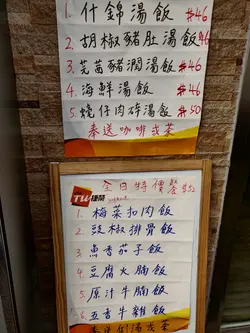 1. 什錦湯飯 #46
2. 胡椒豬肚湯飯 #46
3. 芫茜豬潤湯飯 #46
4. 海鮮湯飯 #46
5. 燒仔肉碎湯飯 #50
奉送咖啡或茶
TW捷榮
全日特價餐飲
1. 梅菜扣肉飯
2. 豉椒排骨飯
3. 魚香茄子飯
4. 豆腐火腩飯
5. 原汁牛腩飯
6. 五香牛雜飯
湯或茶